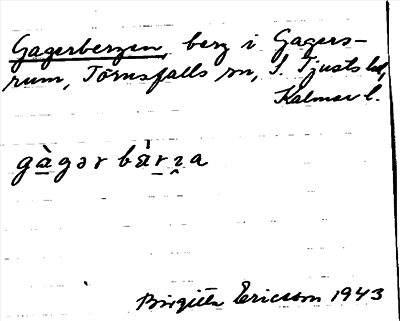 Gagerbergen, berg i Gagers-
rum, Törnsfalls sn, S. Tjusts hd,
Kalmar l.
gàgər bàrɿa
Birgitta Ericsson 1943